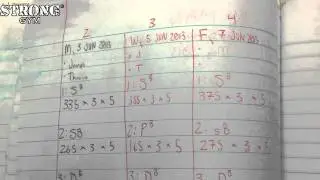 STRONG
GYM
2 3 4
M, 3 JUN 2013 W, 5 JUN 2013 F, 7 JUN 2013
• J •
• T •
1: SB 1: SB 1: SB
335 x 3 x 5 355 x 3 x 5 375 x 3 x 5
2: SB 2: PB 2: SB
265 x 3 x 5 165 x 3 x 5 275 x 3 x 5
3: DB 3: DB